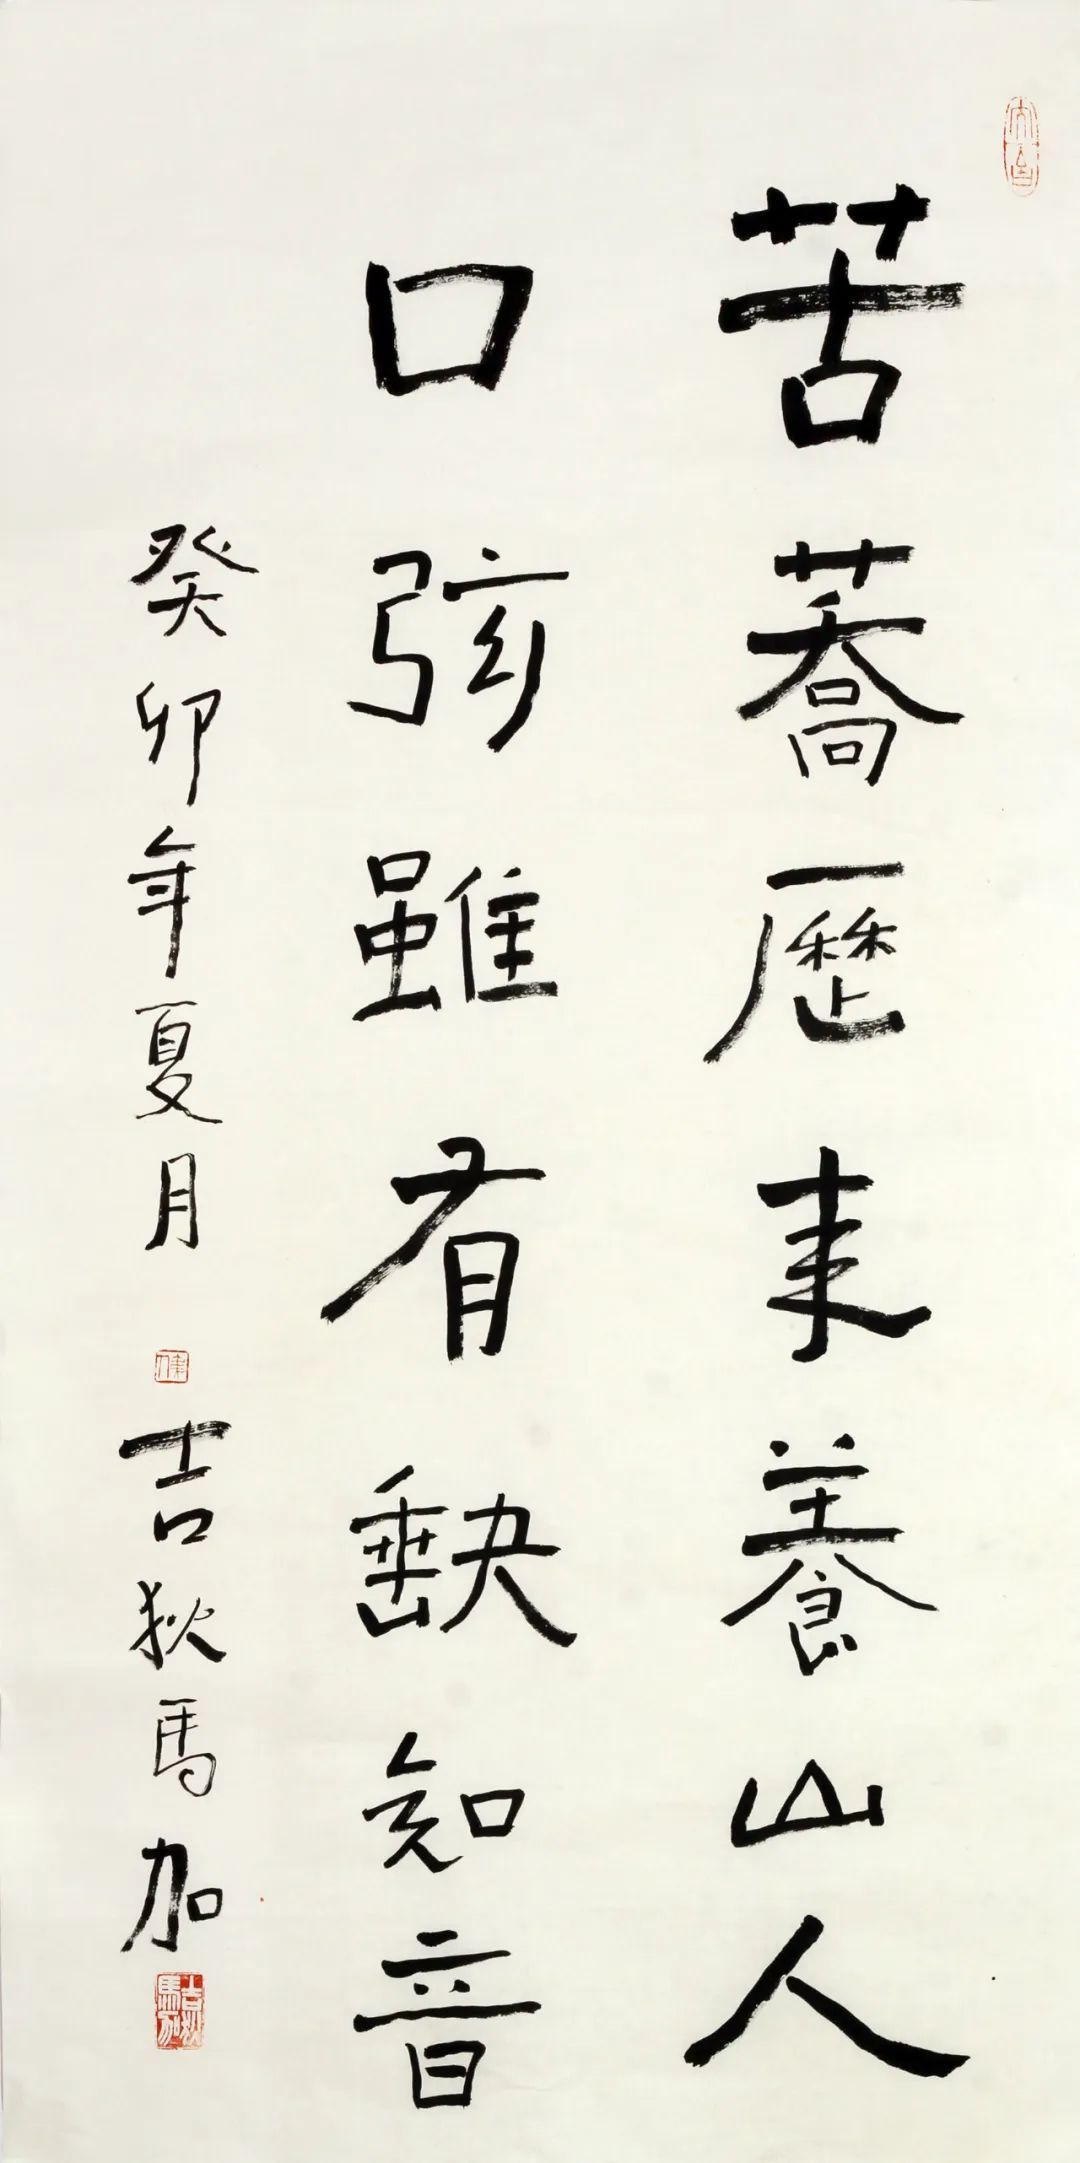 苦蕎歷来養山人
口弦雖有缺知音
癸卯年夏月
吉狄馬加
吉狄馬加